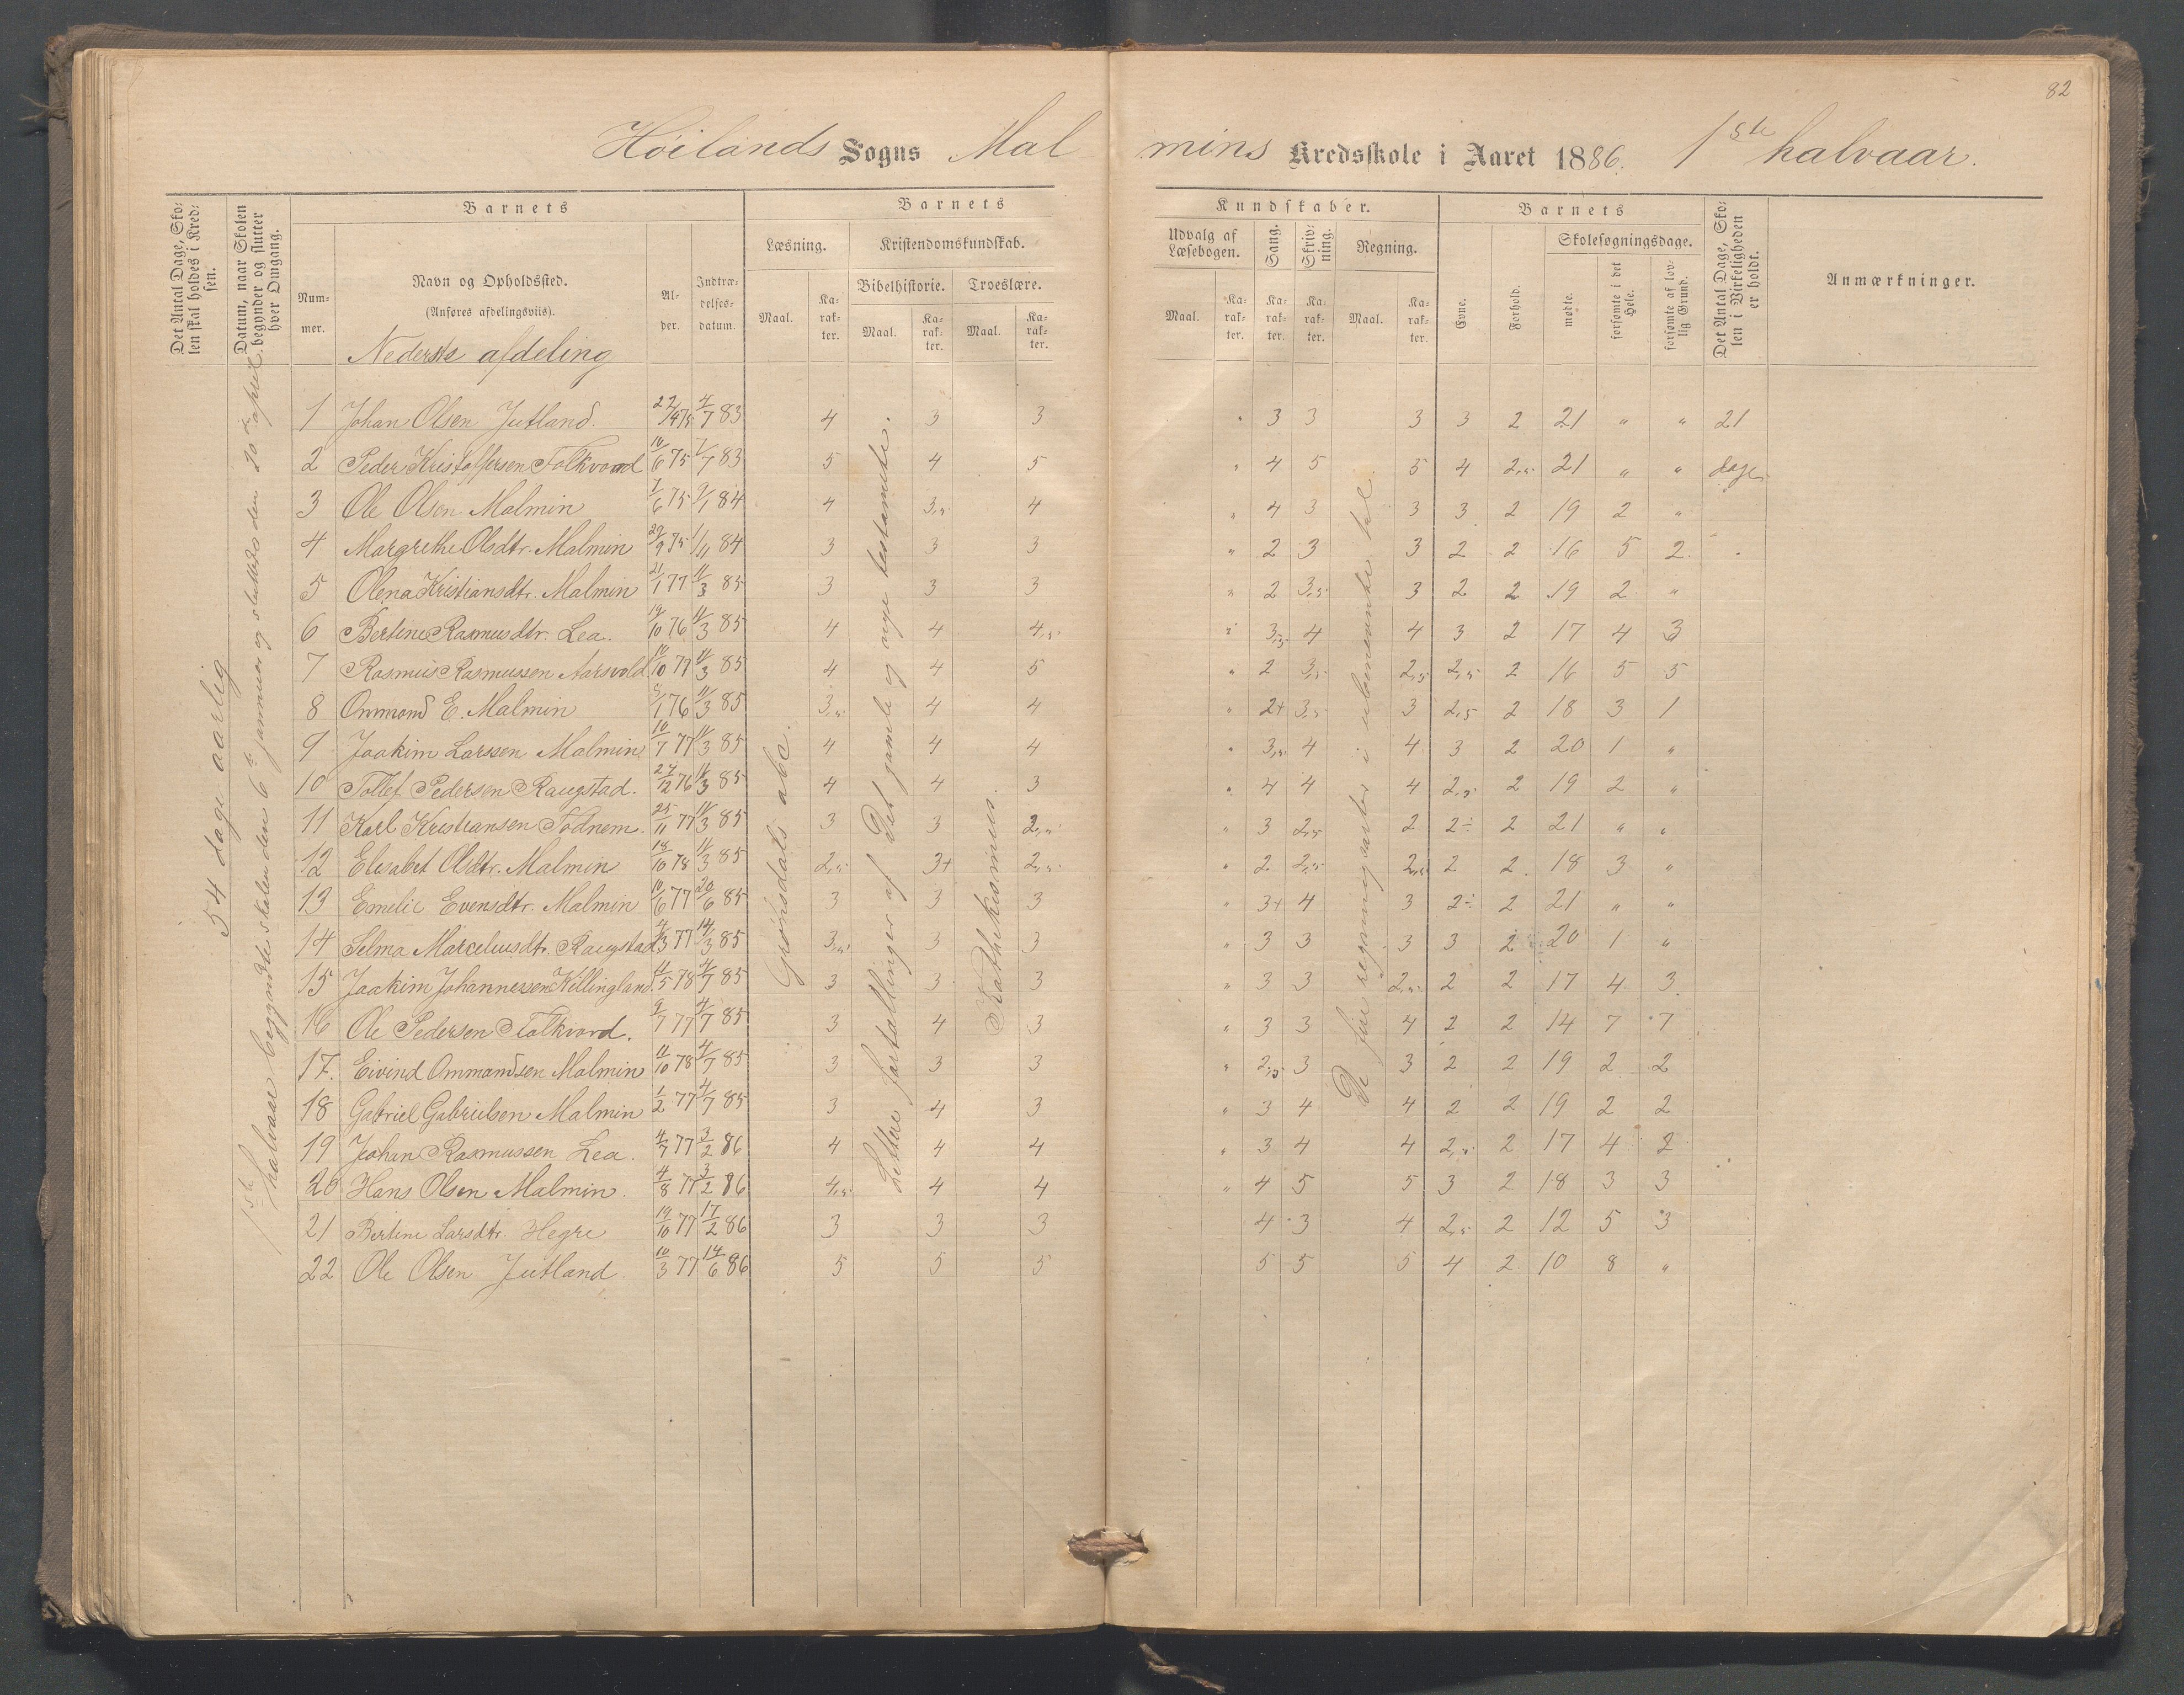 82
Høilands Sogns Malmins Kredsskole i Aaret 1886. 1ste halvaar.
Det Antal Dage, Skolen skal holdes i Kredsen.
Datum, naar Skolen begynder og slutter hver Omgang.
Barnets
Nummer.
Navn og Opholdssted.
(Anføres afdelingsviis).
Nederste afdeling
Alder.
Indtrædelsesdatum.
Barnets Kundskaber.
Læsning.
Maal.
Karakter.
Kristendomskundskab.
Bibelhistorie.
Maal.
Karakter.
Troeslære.
Maal.
Karakter.
Udvalg af Læsebogen.
Maal.
Karakter.
Sang.
Karakter.
Skrivning.
Karakter.
Regning.
Maal.
Karakter.
Barnets
Evne.
Forhold.
Skolesøgningsdage.
mødte.
forsømte i det Hele.
forsømte af lovlig Grund.
Det Antal Dage, Skolen i Virkeligheden er holdt.
Anmærkninger.
54 dage aarlig
1ste halvaar begyndte skolen den 6te januar og sluttedes den 20de april.
Grønsdals abc.
Lettere fortællinger af det gamle og nye testamente.
Kathekismus.
De fire regningsarter i ubenævnte tal
1 Johan Olsen Jutland. 22/4 75 4/7 83 4 3 3 " 3 3 3 3 2 21 " " 21
2 Peder Kristoffersen Folkvord 10/6 75 7/7 83 5 4 5 " 4 5 5 4 2,5 21 " " dage
3 Ole Olsen Malmin 7/6 75 9/1 84 4 3,5 4 " 4 3 3 3 2 19 2 "
4 Margrethe Olsdtr. Malmin 29/9 75 1/11 84 3 3 3 " 2 3 3 2 2 16 5 2
5 Olena Kristiansdtr. Malmin 21/1 77 11/3 85 3 3 3 " 2 3,5 3 2 2 19 2 "
6 Bertine Rasmusdtr. Lea. 19/10 76 11/3 85 4 4 4,5 " 3,5 4 4 3 2 17 4 3
7 Rasmus Rasmussen Aarsvold 10/10 77 11/3 85 4 4 5 " 2 3,5 2,5 2,5 2 16 5 5
8 Ommond E. Malmin 8/1 76 11/3 85 3,5 4 4 " 2+ 3,5 3 2,5 2 18 3 1
9 Joakim Larssen Malmin 10/7 77 11/3 85 4 4 4 " 3,5 4 4 3 2 20 1 "
10 Tollef Pedersen Raugstad. 27/12 76 11/3 85 4 4 3 " 4 4 4 2,5 2 19 2 "
11 Karl Kristiansen Tødnem. 25/11 77 11/3 85 3 3 2,5 " 3 2,5 2 2÷ 2 21 " "
12 Elisabet Olsdtr. Malmin 18/10 78 11/3 85 2,5 3+ 2,5 " 2 2,5 2,5 2 2 18 3 "
13 Emelie Evensdtr. Malmin 10/6 77 20/6 85 3 3 3 " 3+ 4 3 2÷ 2 21 " "
14 Selma Marceliusdtr. Raugstad 4/3 77 14/3 85 3,5 3 3 " 3 3 3 3 2 20 1 "
15 Joakim Johannessen Killingland. 4/5 78 4/7 85 3 3 3 " 3 3 2,5 2 2 17 4 3
16 Ole Pedersen Folkvord. 9/7 77 4/7 85 3 4 3 " 3 3 4 2 2 14 7 7
17. Eivind Ommandsen Malmin 11/10 78 4/7 85 3 3 3 " 2,5 3 3 2 2 19 2 2
18 Gabriel Gabrielsen Malmin 1/2 77 4/7 85 3 4 3 " 3 4 4 2 2 19 2 2
19 Johan Rasmussen Lea. 4/7 77 3/2 86 4 4 4 " 3 4 4 2,5 2 17 4 2
20 Hans Olsen Malmin. 4/8 77 3/2 86 4,5 4 4 " 4 5 5 3 2 18 3 3
21 Bertine Larsdtr. Hegre 19/10 77 17/2 86 3 3 3 4 3 4 2,5 2 12 5 3
22 Ole Olsen Jutland. 10/3 77 14/6 86 5 5 5 5 5 5 4 2 10 8 "